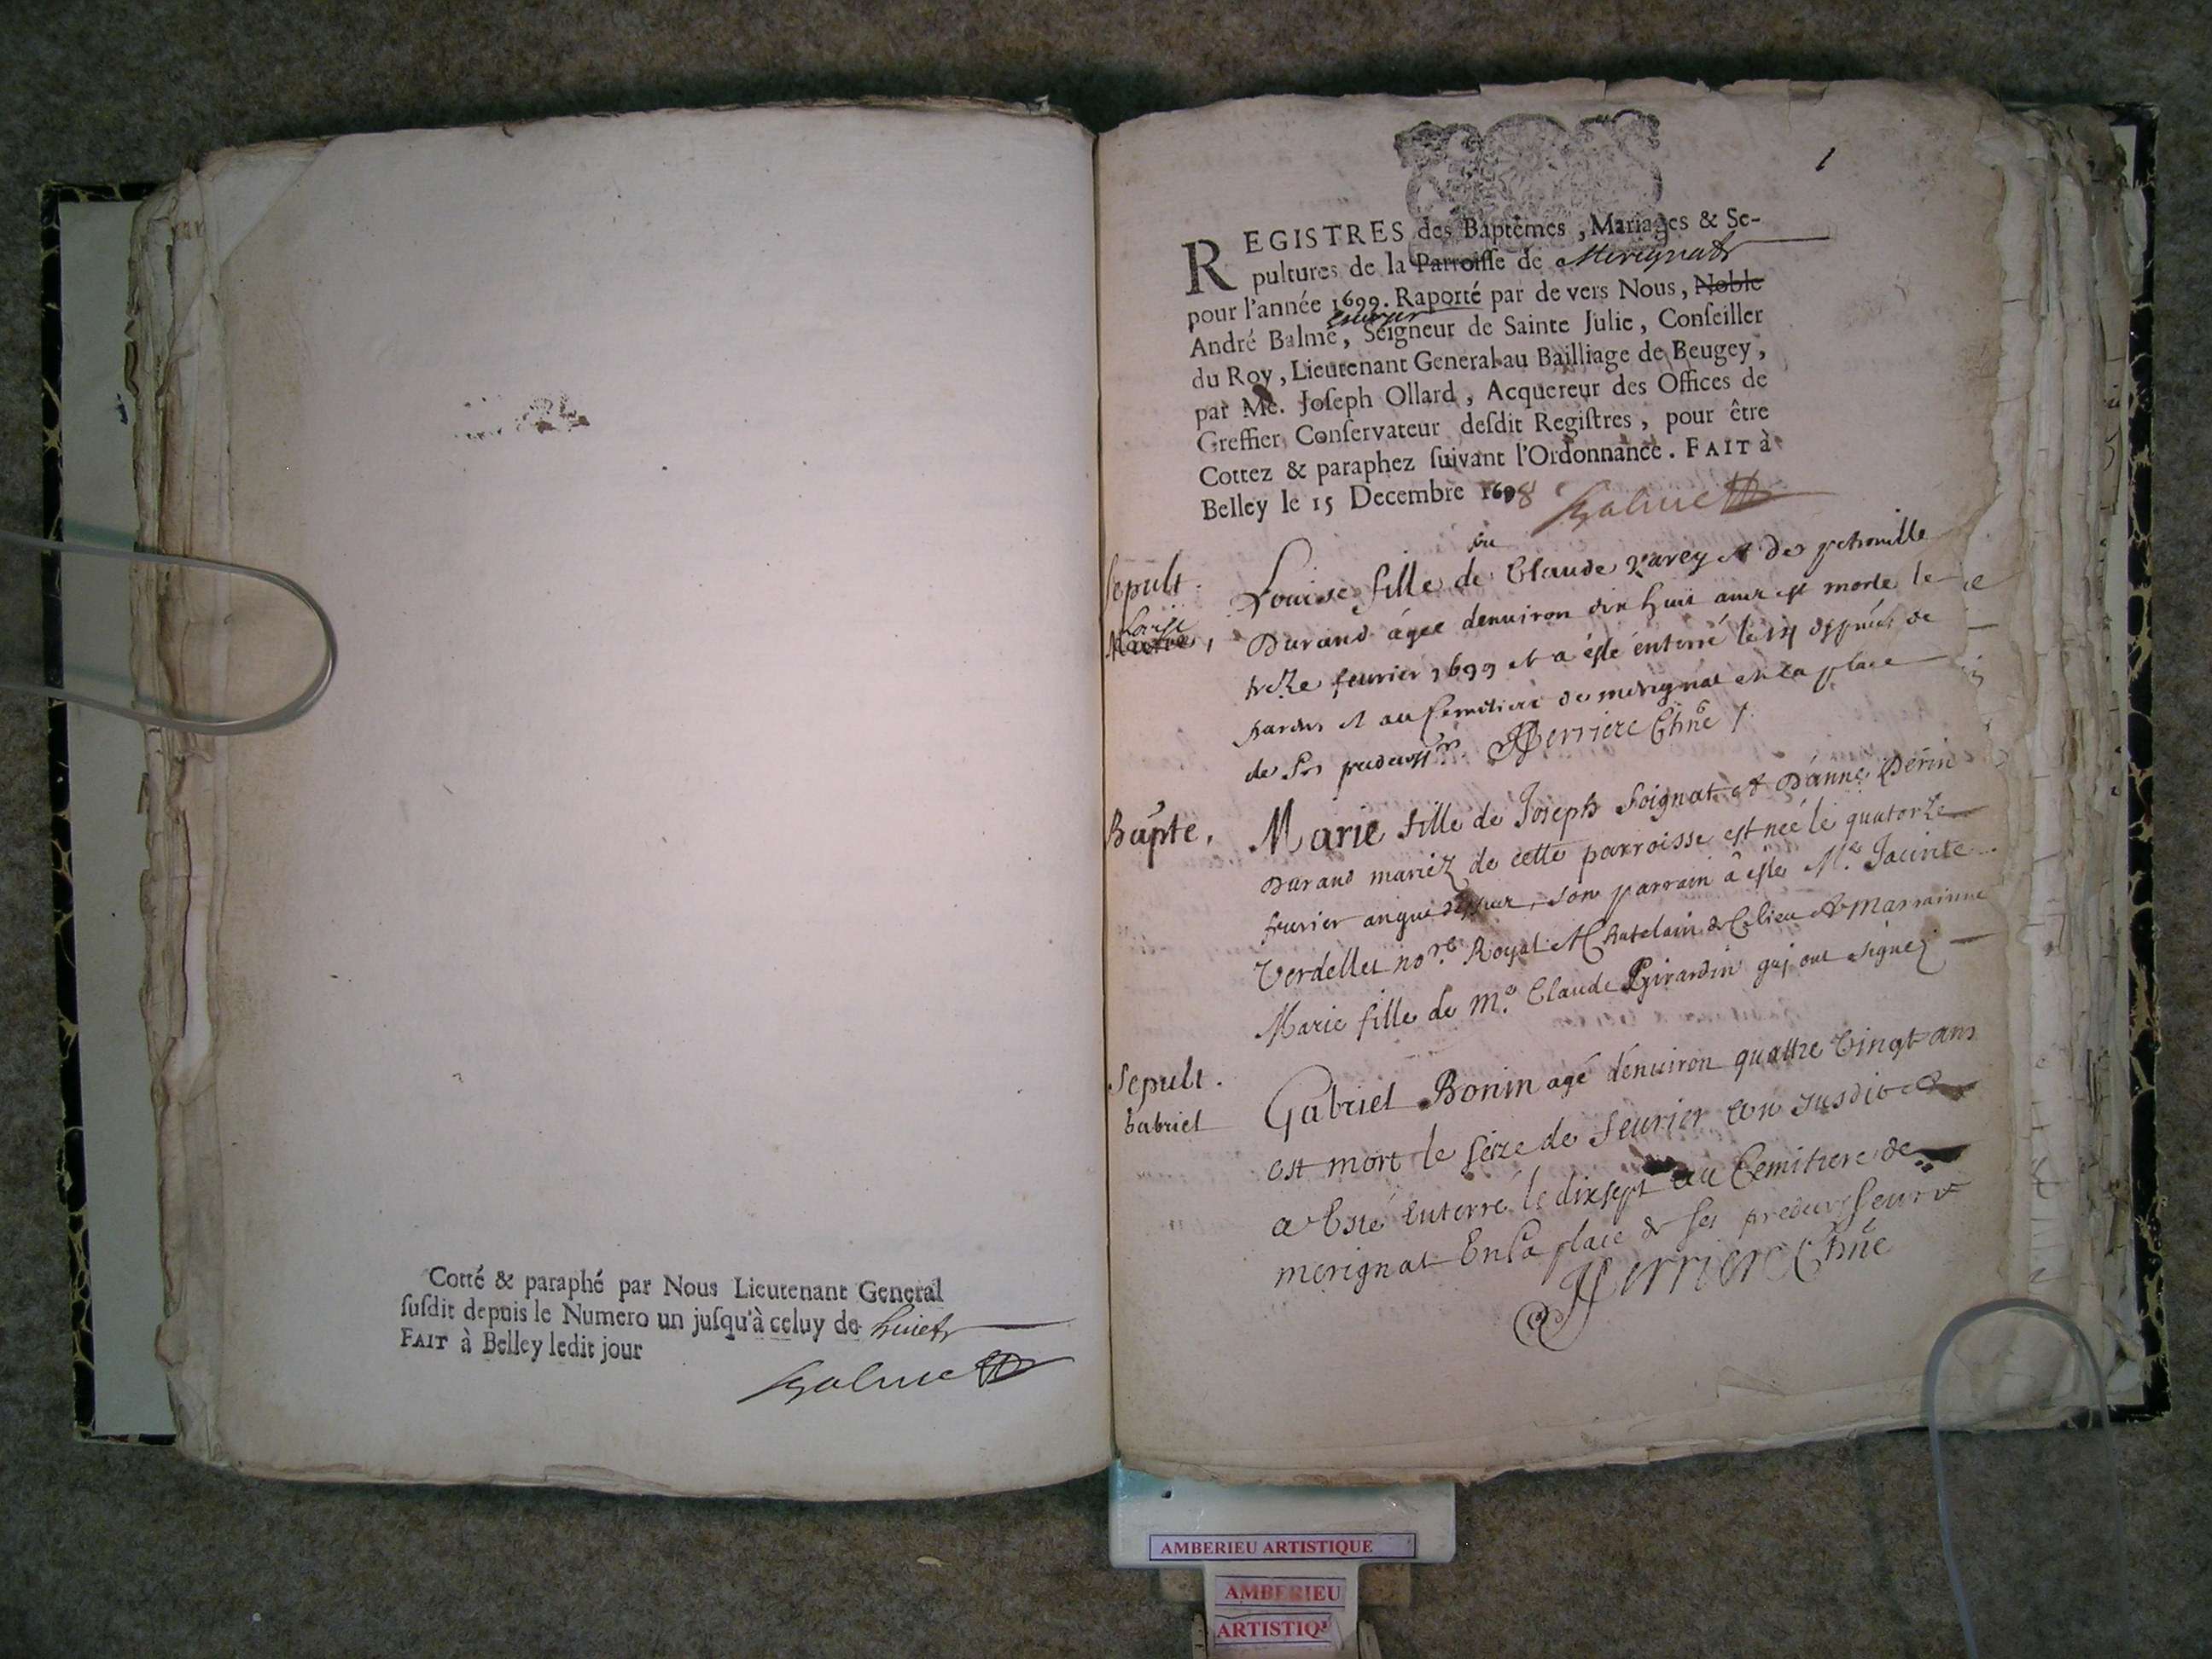 Cotté & paraphé par Nous Lieutenant General
susdit depuis le Numero un jusqu'à celuy de huict
FAIT à Belley ledit jour
Balme
1
REGISTRES des Baptêmes, Mariages & Se-
pultures de la Parroisse de Merignat
pour l'année 1699. Raporté par de vers Nous, Noble
escuyer
André Balme, Seigneur de Sainte Julie, Conseiller
du Roy, Lieutenant General au Bailliage de Beugey,
par Me. Joseph Ollard, Acquereur des Offices de
Greffier Conservateur desdit Registres, pour être
Cottez & paraphez suivant l'Ordonnance. FAIT à
Belley le 15 Decembre 1698 Balme
Sepult.
Louise
feu
Louise fille de Claude Varey et de petronille
Durand agée denuiron dix huit ans est morte le
treze feurier 1699 et a esté enterré le
au Cemitiere de merignat en la place
de ses predecess.rs Perriere
Bapte.
Marie fille de Joseph Soignat et D'anne Perin
Durand mariéz de cette parroisse est née le quatorze
feurier son parrain a este M.e Jacinte
Verdellet no.re Royal et Chatelain de Ce lieu et marrainne
Marie fille de M.e Claude Girardin qui ont signez
Sepult.
Gabriel
Gabriel Bonin agé denuiron quattre Vingt ans
est mort le seize de feurier an susdit et
a Esté Enterré le dixsept au Cemitiere de
merignat En la place de ses predecesseurs
Perriere
AMBERIEU ARTISTIQUE
AMBERIEU
ARTISTIQU